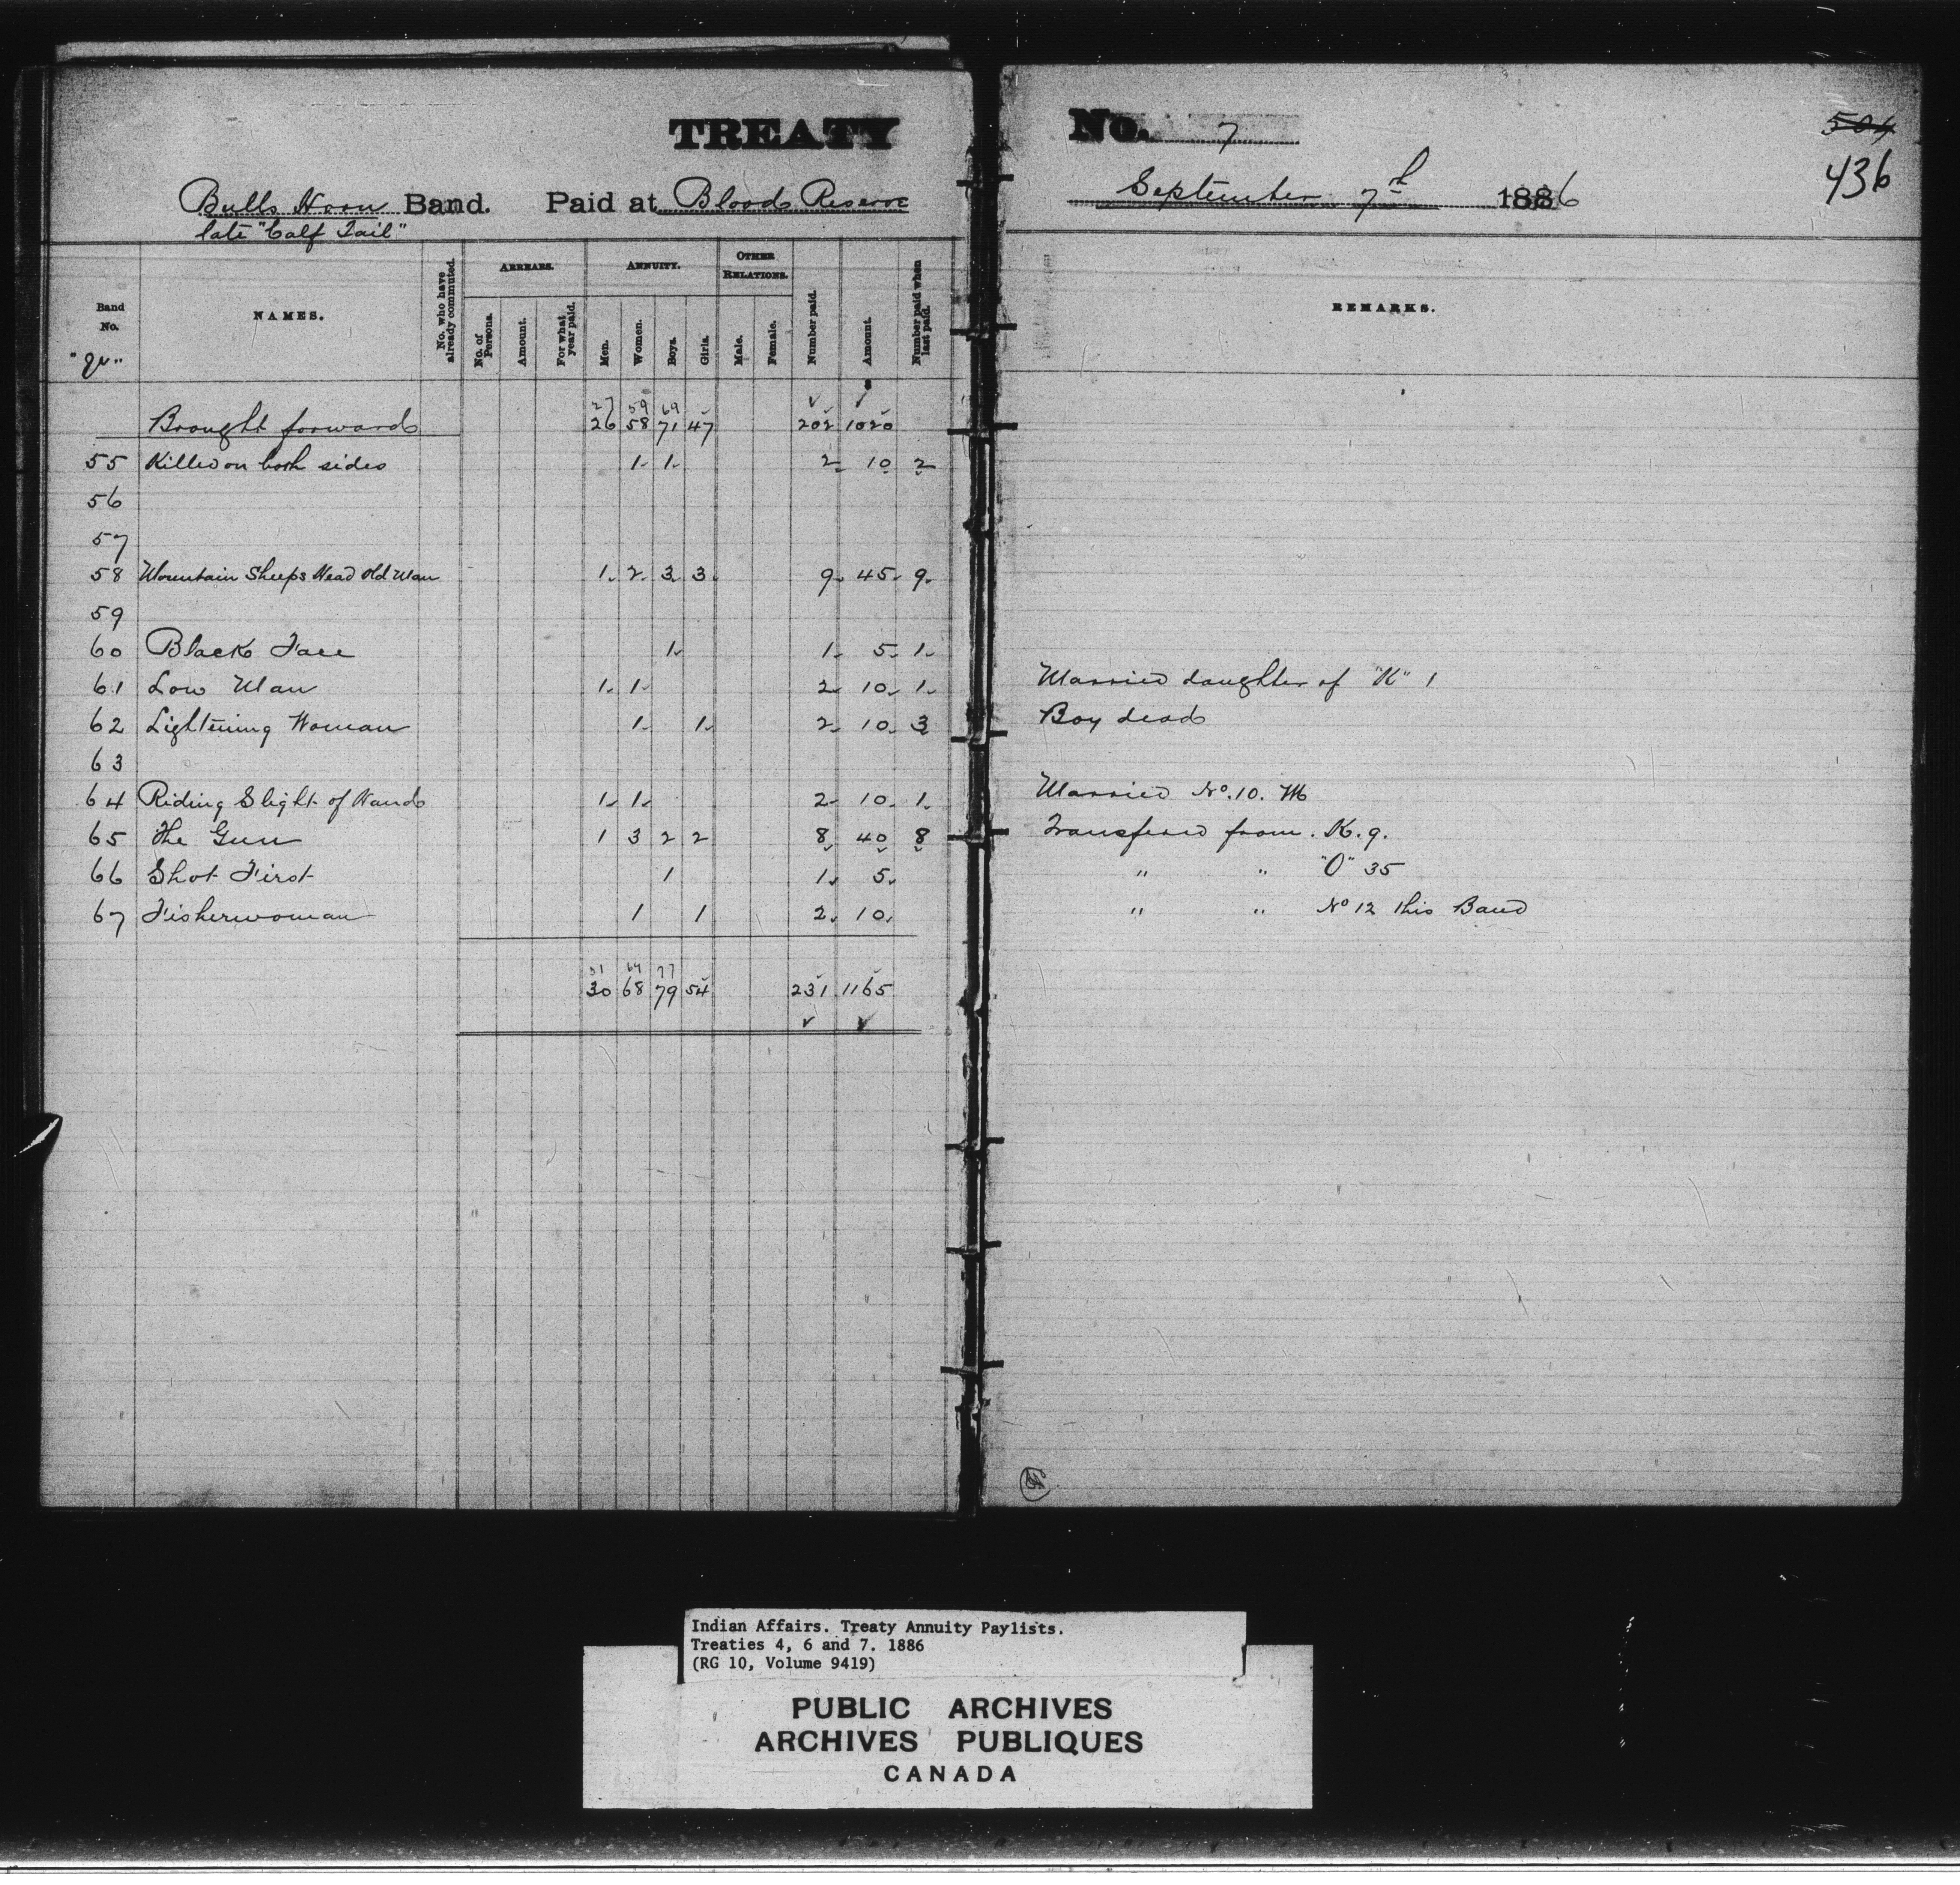 TREATY No. 7
504
436
Bulls Horn Band. Paid at Bloods Reserve September 7th 1886
late "Calf Tail"
Band No.
NAMES.
No. who have already commuted.
ARREARS.
No. of Persons.
Amount.
For what year paid.
ANNUITY.
Men.
Women.
Boys.
Girls.
OTHER RELATIONS.
Male.
Female.
Number paid.
Amount.
Number paid when last paid.
REMARKS.
27 59 69
Brought forward 26 58 71 47 202 1020
55 Killed on both sides 1 1 2 10 2
56
57
58 Mountain Sheeps Head Old Man 1 2 3 3 9 45 9
59
60 Black Face 1 1 5 1
61 Low Man 1 1 2 10 1 Married daughter of "K" 1
62 Lightening Woman 1 1 2 10 3 Boy dead
63
64 Riding Slight of Hand 1 1 2 10 1 Married No. 10. M
65 The Gun 1 3 2 2 8 40 8 Transfered from. K. 9.
66 Shot First 1 1 5 " " "O" 35
67 Fisherwoman 1 1 2 10 " " No 12 this Band
31 64 77
30 68 79 54 231 1165
Indian Affairs. Treaty Annuity Paylists.
Treaties 4, 6 and 7. 1886
(RG 10, Volume 9419)
PUBLIC ARCHIVES
ARCHIVES PUBLIQUES
CANADA